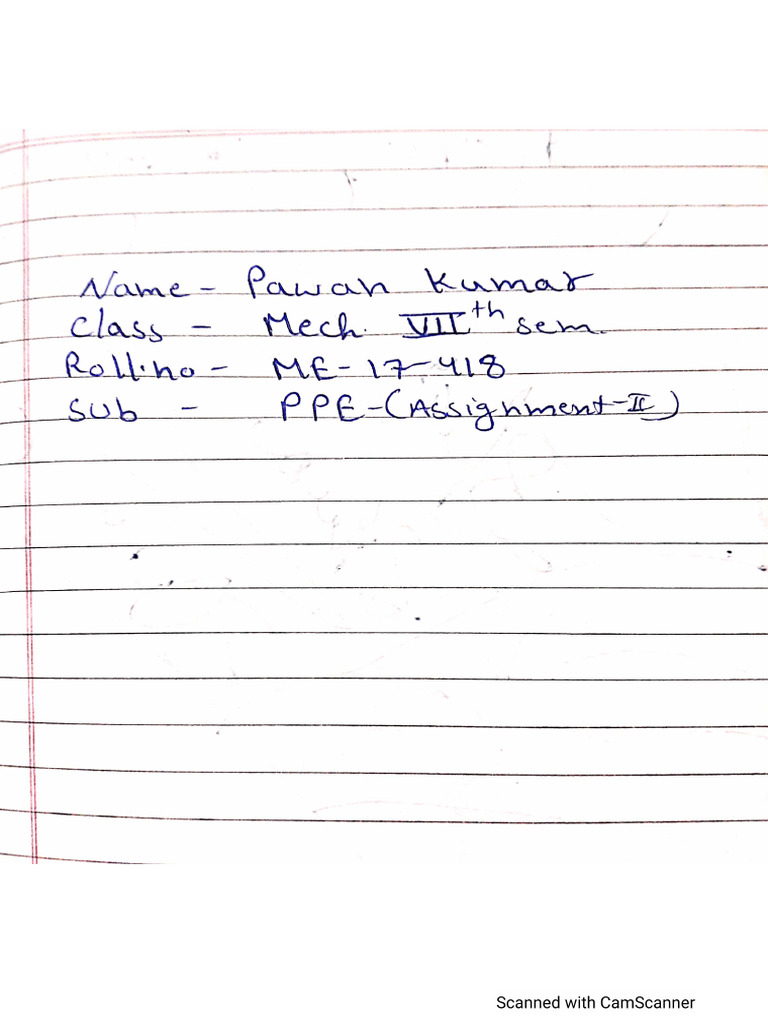 Name - Pawan Kumar
Class - Mech. VIIth sem.
Roll.no - ME-17-418
Sub - PPE-(Assignment-II)
Scanned with CamScanner